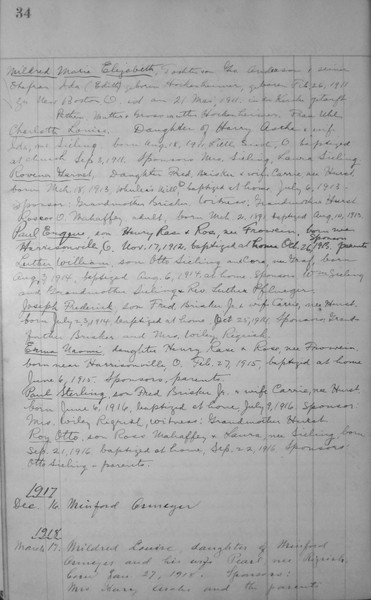 34
Mildred Marie Elizabeth, Tochter Geo Anderson & seiner
Ehefrau Ida (Edith) geboren Hockenhammer, geboren Feb. 26, 1911
New Boston O. und am 21 Mai, 1911, in der Kirche getauft
Pathen: Mutter Hockenhammer.
Charlotte Louise, Daughter of Harry Asche & wife
Ida, née Sieling born Aug. 18, 1911, Street, O. baptized
at church Sep 3, 1911. Sponsors Mrs. Sieling, Laura Sieling
Harriet, Daughter Fred. Brisker & wife Carrie, née Hurst,
born Mch. 18, 1913, O. baptized at home July 6, 1913 -
Sponsor: Grandmother Brisker Witness: Grandmother Hurst
Roscoe O. Mahaffey, adult, born Mch. 21, baptized Aug. 10, 1913.
Paul Eugene son Henry Rase & Rose, née Frowein, born near
Harrisonville, O. Nov. 17, 1912, baptized at home Oct. 26, 1913. parents
Luther William, son Otto Sieling and Cora, née Graf, born
Aug. 3, 1914, baptized Aug. 6, 1914 at home. Sponsors, Wm Sieling
and Grandmother Sieling & Rev. Luther
Joseph Frederick, son Fred Brisker Jr. & wife Carrie, née Hurst,
born July 23, 1914, baptized at home, Oct 25, 1914, Sponsors, Grand-
father Brisker and Mrs. Wiley
Erma Naomi daughter Henry Rase & Rose, née Frowein,
born near Harrisonville, O. Feb. 27, 1915, baptized at home
June 6, 1915 Sponsors, parents.
Paul Sterling, son Fred Brisker Jr. & wife Carrie, née Hurst
born June 6, 1916, baptized at home, July 9, 1916. Sponsor
Mrs. Wiley witness: Grandmother Hurst
Roy Otto, son Ross Mahaffey & Laura, née Sieling, born
Sep. 21, 1916, baptized at home, Sep. 22, 1916 Sponsors:
Otto Sieling - parents.
1917
Dec 16 Minford
1918
March 17. Mildred Louise, daughter of Minford
and his wife Pearl née
born Jan. 27, 1918. Sponsors:
Mrs Harry Asche and the parents